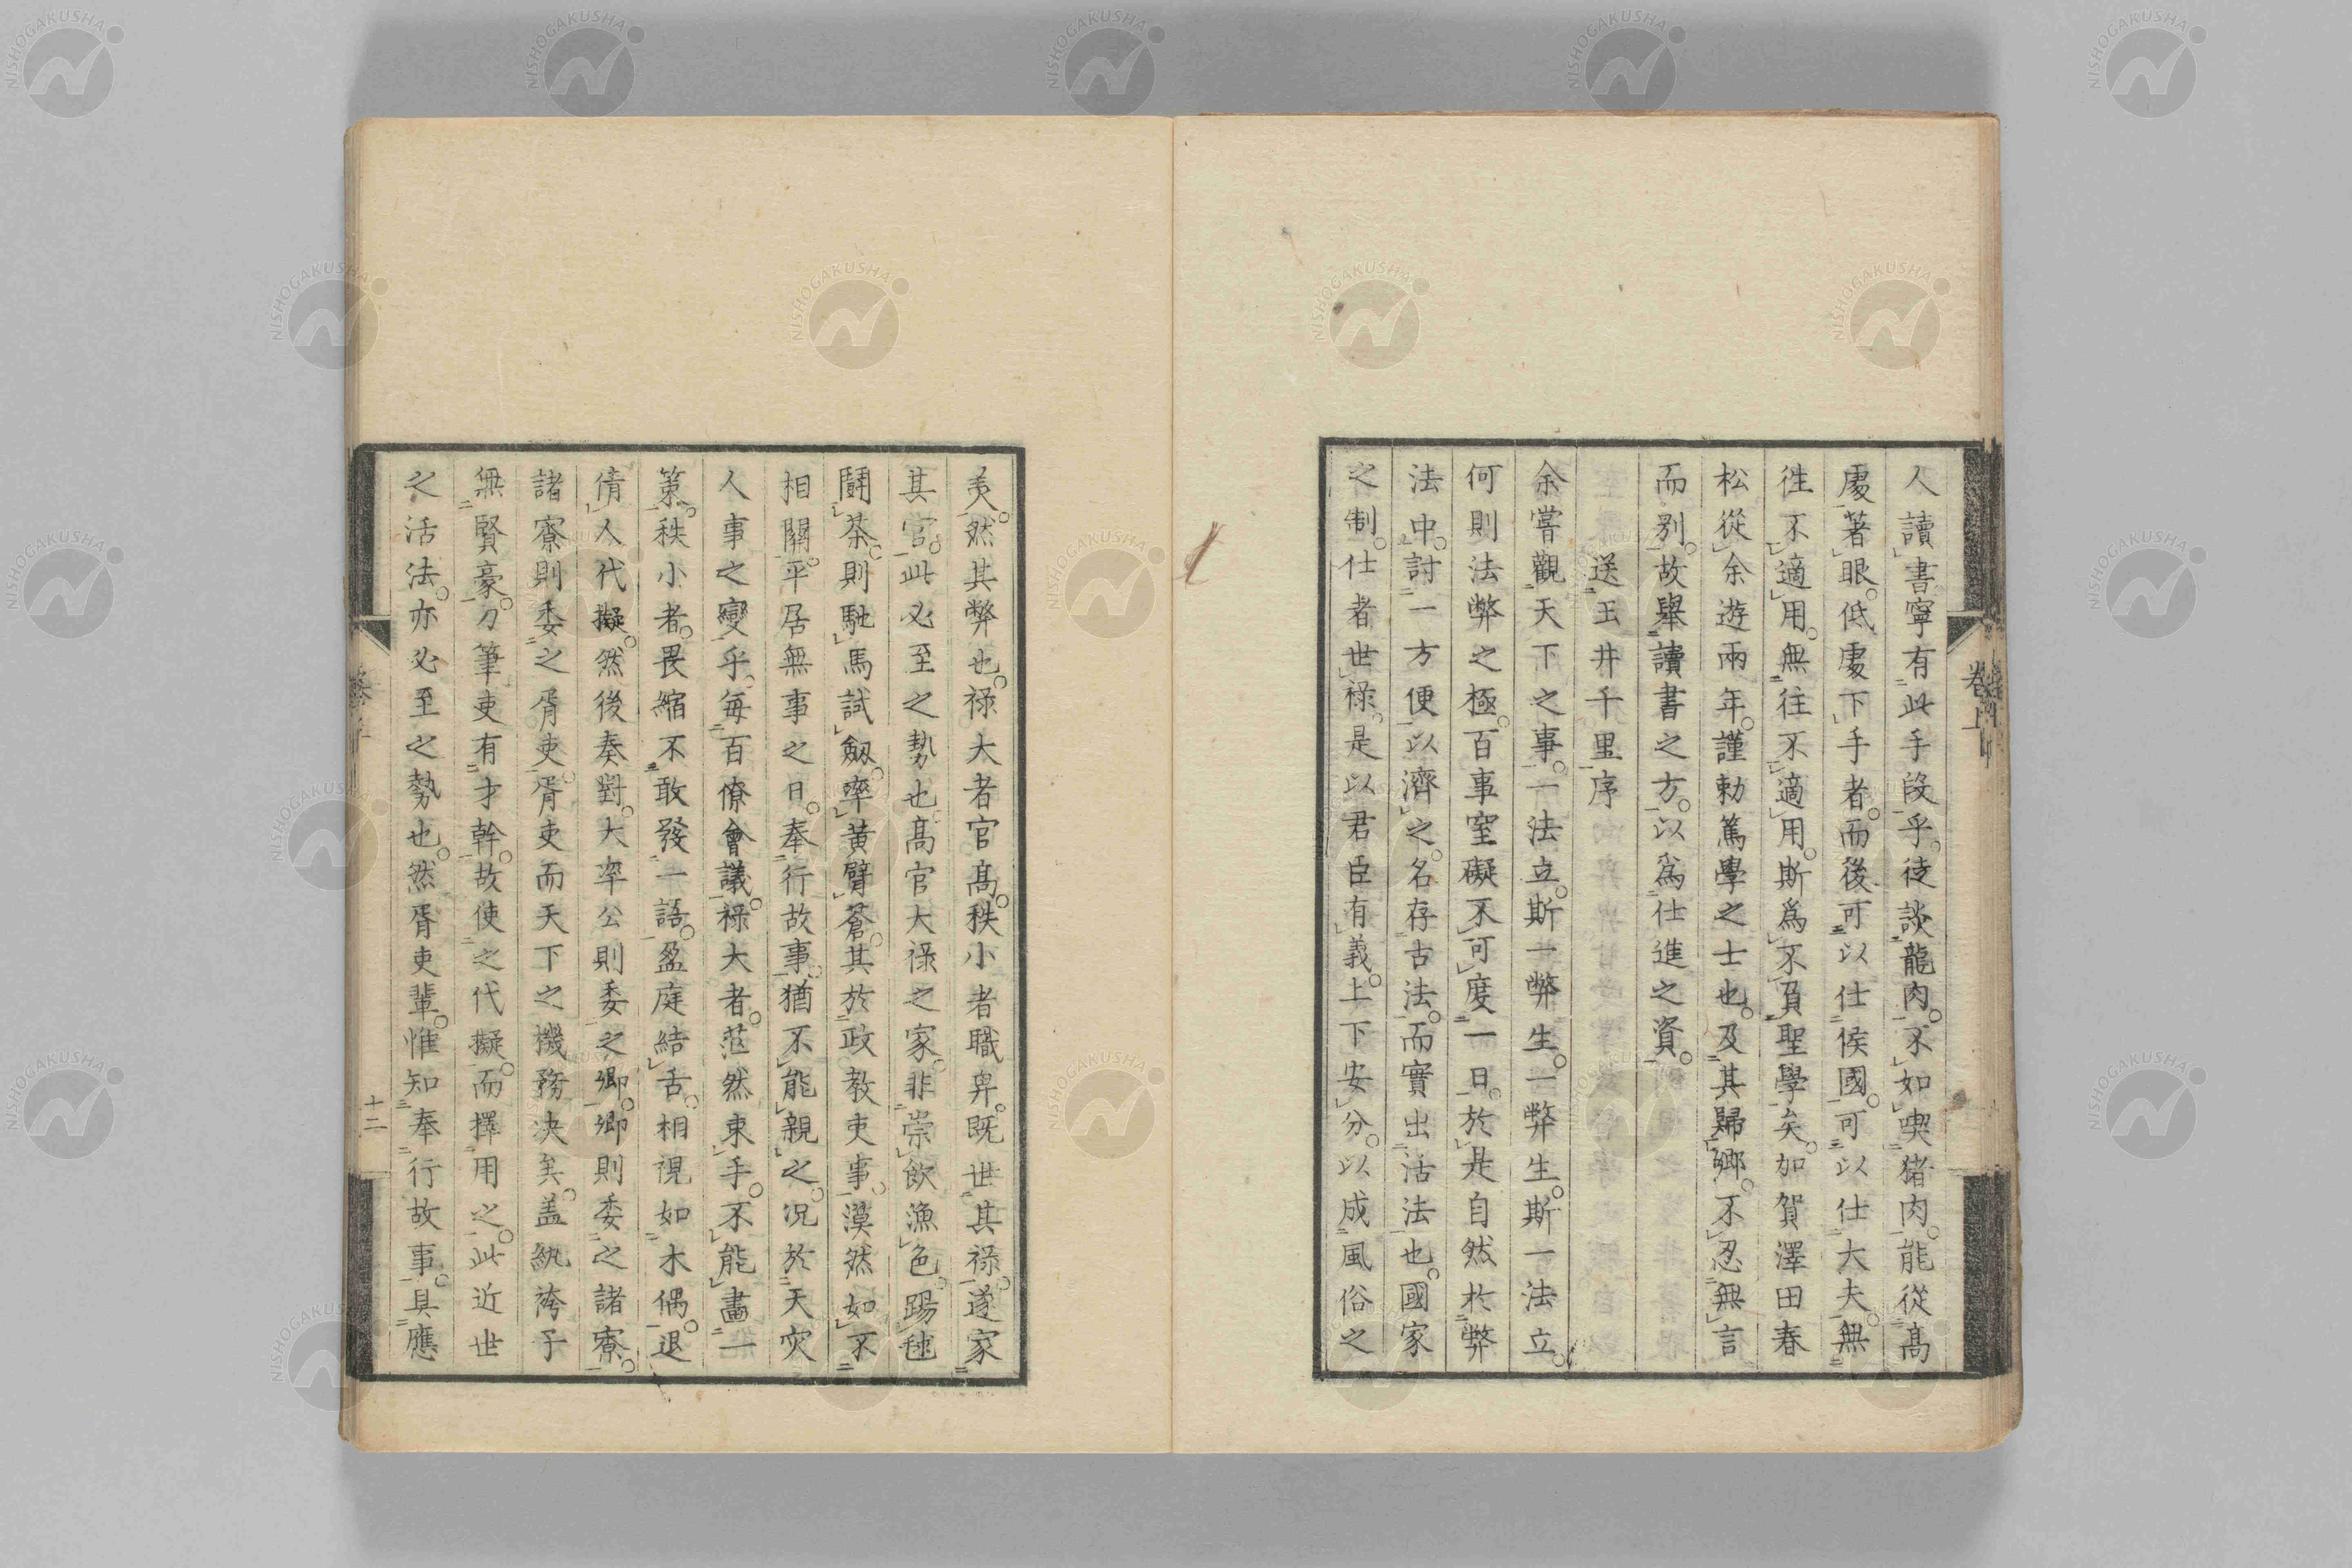 人讀書寧有此手段乎。徒談龍肉。不如喫猪肉。能從高
處著眼。低處下手者。而後可以仕侯國。可以仕大夫。無
徃不適用。無往不適用。斯爲不負聖學矣。加賀澤田春
松從余遊兩年。謹勅篤學之士也。及其歸鄉。不忍無言
而别。故舉讀書之方。以爲仕進之資。
送王井千里序
余嘗觀天下之事。一法立。斯一弊生。一弊生。斯一法立。
何則法弊之極。百事窒礙不可度一日。於是自然於弊
法中。討一方便以濟之。名存古法。而實出活法也。國家
之制。仕者世禄。是以君臣有義。上下安分。以成風俗之
美。然其弊也。禄大者官高。秩小者職卑。既世其禄。遂家
其官。此必至之勢也。高官大禄之家。非崇飲漁色。踢毬
鬪茶。則馳馬試劔。牽黄臂蒼。其於政教吏事。漠然如不
相關。平居無事之日。奉行故事。猶不能親之。况於天灾
人事之變乎。毎百僚會議。禄大者。茫然束手。不能畵一
策。秩小者。畏縮不敢發一語。盈庭結舌。相視如木偶。退
倩人代擬。然後奏對。大率公則委之卿。卿則委之諸寮。
諸寮則委之胥吏。胥吏而天下之機務決矣。盖紈袴子
無賢豪。刀筆吏有才幹。故使之代擬。而擇用之。此近世
之活法。亦必至之勢也。然胥吏輩。惟知奉行故事。具應
卷上
十二
NISHOGAKUSHA